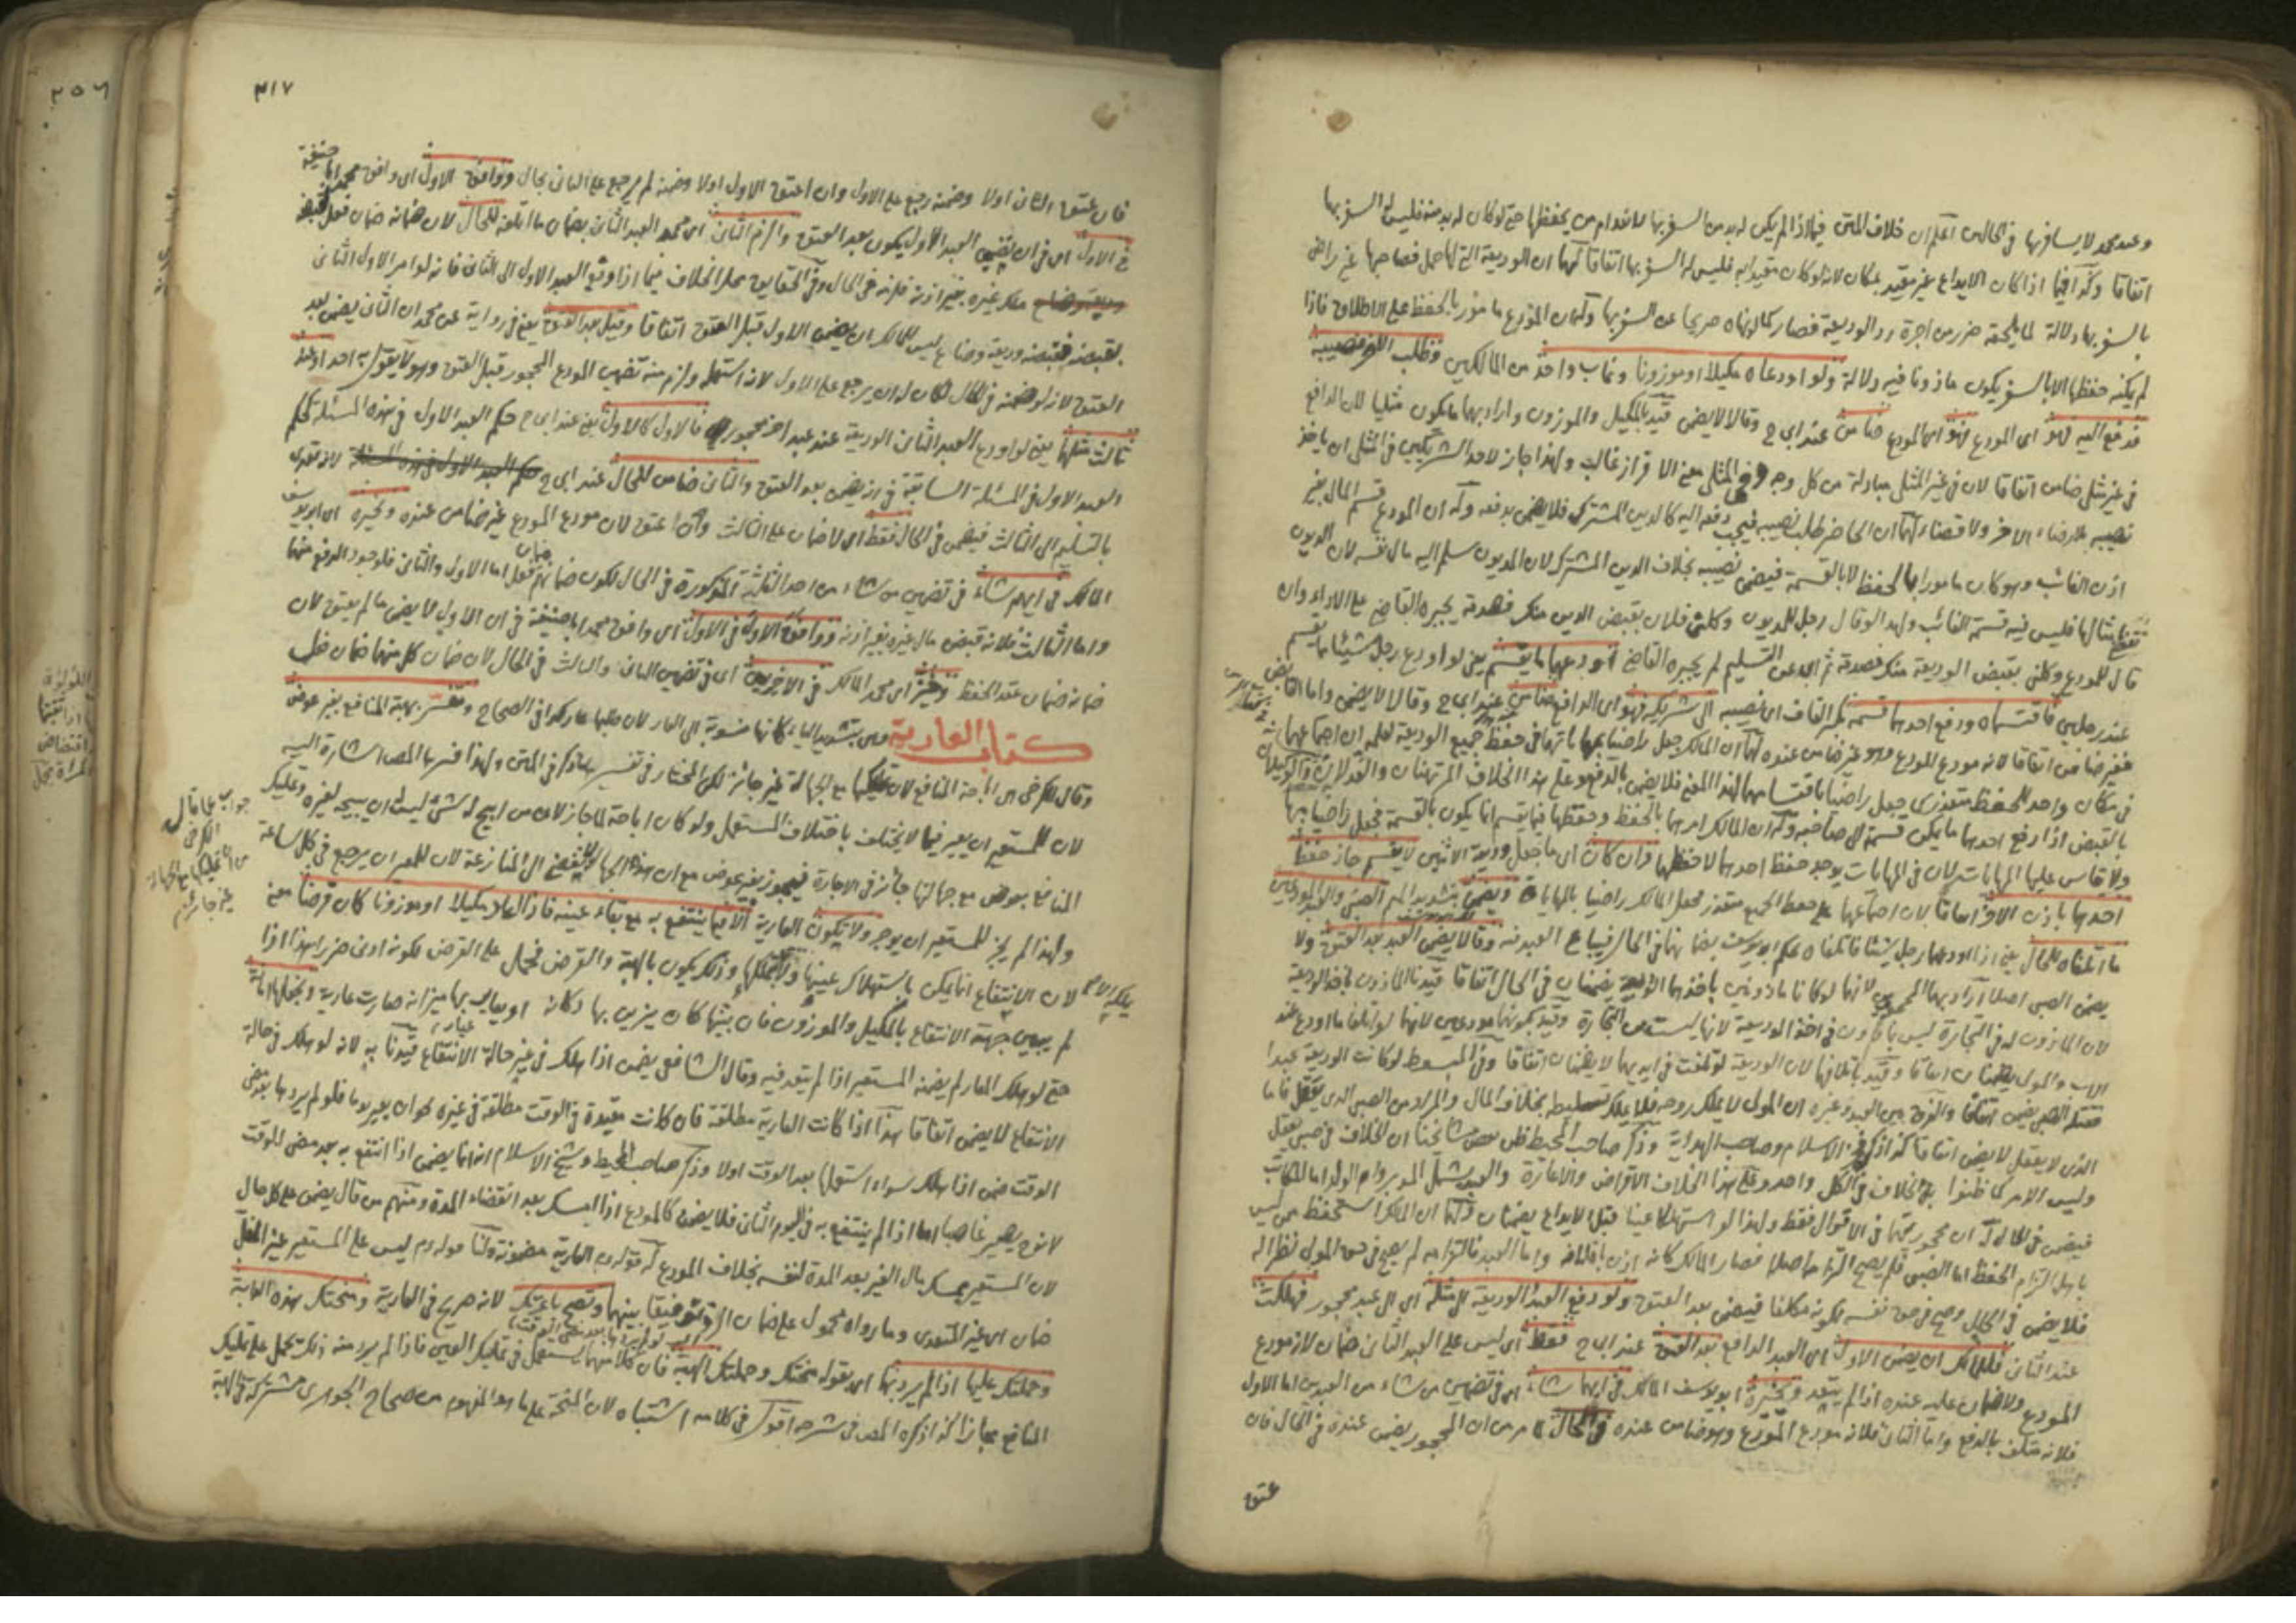 وعند محمد لا يسافر بها في الحالين اعلم ان خلاف المتن فيما اذا لم يكن له بد من السفر بها لانعدام من يحفظها حتى لو كان له بد منه فليس له السفر بها
اتفاقا وكذا فيما اذا كان الايداع غير مقيد بمكان لانه لو كان مقيدا به فليس له السفر بها اتفاقا لهما ان الوديعة التي لها حمل فصاحبها غير راض
بالسفر بها دلالة لما يلحقه ضرر من اجرة رد الوديعة فصار كما لو نهاه صريحا عن السفر بها وله ان المودع مأمور بالحفظ على الاطلاق فاذا
لم يمكنه حفظها الا بالسفر يكون ماذونا فيه دلالة ولو اودعاه مكيلا او موزونا وغاب واحد من المالكين وطلب الاخر نصيبه
فدفع اليه فهو اى المودع ضامن عند ابي ح وقالا لا يضمن قيد بالمكيل والموزون واراد بهما ما يكون مثليا لان الدافع
في غير مثلي ضامن اتفاقا لان في غير المثلي مبادلة من كل وجه وفي المثلي معنى الافراز غالب ولهذا جاز لاحد الشريكين في المثلي ان ياخذ
نصيبه بلا رضاء الاخر ولا قضاء لهما ان الحاضر طلب نصيبه فيجب دفعه اليه كالدين المشترك فلا يضمن بدفعه وله ان المودع قسم المال بغير
اذن الغائب وهو كان مامورا بالحفظ لا بالقسمة فيضمن نصيبه بخلاف الدين المشترك لان المديون سلم اليه مال نفسه لان الديون
تقضى بامثالها فليس فيه قسمة الغائب ولهذا لو قال رجل للمديون وكلني فلان بقبض الدين منك فصدقه يجبره القاضي على الاداء وان
قال للمودع وكلني بقبض الوديعة منك فصدقه ثم ابى عن التسليم لم يجبره القاضي او اودعهما ما يقسم يعني لو اودع رجل شيئا مما يقسم
عند رجلين فاقتسماه ودفع احدهما قسمه بكسر القاف اى نصيبه الى شريكه فهو اى الدافع ضامن عند ابي ح وقالا لا يضمن واما القابض
فغير ضامن اتفاقا لانه مودع المودع وهو غير ضامن عنده لهما ان المالك جعل راضيا بامانتهما في حفظ جميع الوديعة لعلمه ان اجتماعهما
في مكان واحد للحفظ متعذر
بالقبض اذا دفع احدهما ما يمكن قسمته الى صاحبه وله ان المالك امرهما بالحفظ وحفظهما فيما يقسم انما يكون بالقسمة فجعل راضيا بها
ولا يقاس عليها المهايات لان في المهايات يوجد حفظ احدهما لا حفظهما وان كان اى ما جعل وديعة الاثنين لا يقسم جاز حفظ
احدهما باذن الاخر اتفاقا لان اجتماعهما على حفظ الجميع متعذر فجعل المالك راضيا بالمهاياة ويضمن بتشديد الميم الصبي والعبد المودعين
ما اتلفاه للحال يعني اذا اودعهما رجل شيئا فاتلفاه حكم ابو يوسف بضمانهما في الحال فيباع العبد فيه وقالا يضمن العبد بعد العتق ولا
يضمن الصبي اصلا اراد بهما المحجورين لانهما لو كانا ماذونين باخذهما الوديعة يضمنان في الحال اتفاقا
لان الماذون له في التجارة ليس بماذون في اخذ الوديعة لانها ليست من التجارة وقيد بكونهما مودعين لانهما لو اتلفا ما اودع عند
الاب والمولى يضمنان اتفاقا وقيد باتلافهما لان الوديعة لو تلفت في ايديهما لا يضمنان اتفاقا وفي المبسوط لو كانت الوديعة عبدا
فقتله الصبي يضمن اتفاقا والفرق بين العبد وغيره ان المولى لا يملك روحه فلا يملك تسليطه بخلاف المال والمراد من الصبي الذي يعقل فاما
الذي لا يعقل لا يضمن اتفاقا كذا ذكره فخر الاسلام وصاحب الهداية وذكر صاحب المحيط ظن بعض مشائخنا ان الخلاف في صبي يعقل
وليس الامر كما ظنوا بل الخلاف في الكل واحد وعلى هذا الخلاف الاقراض والاعارة والعبد يشمل المدبر وام الولد اما المكاتب
فيضمن في الحال له ان محجوريتهما في الاقوال فقط ولهذا لو استهلكا عينا قبل الايداع يضمنان ولهما ان المالك استحفظ من ليس
باهل التزام الحفظ اما الصبي فلم يصح التزامه اصلا فصار المالك كانه اذن باتلافه واما العبد فالتزامه لم يصح في حق المولى نظرا له
فلا يضمن في الحال وصح في حق نفسه لكونه مكلفا فيضمن بعد العتق ولو دفع العبد الوديعة الى مثله اى الى عبد محجور فهلكت
عند الثاني فللمالك ان يضمن الاول اى العبد الدافع بعد العتق عند ابي ح فقط اى ليس على العبد الثاني ضمان لانه مودع
المودع ولا ضمان عليه عنده اذا لم يتعد ويخيره ابو يوسف المالك في ايهما شاء اى في تضمين من شاء من العبدين اما الاول
فلانه متلف بالدفع واما الثاني فلانه مودع المودع وهو ضامن عنده في الحال لما مر من ان المحجور يضمن عنده في الحال فان
عتق
٣١٧
فان عتق الثاني اولا وضمنه رجع على الاول وان اعتق الاول اولا وضمنه لم يرجع على الثاني بحال ووافق الاول اى وافق محمد ابا حنيفة
في الاول اى في ان يضمن العبد الاول يكون بعد العتق والزم الثاني اى محمد العبد الثاني بضمان ما اتلفه للحال لان ضمانه ضمان فعل لقبضه
ملك غيره بغير اذنه فلزمه في الحال وفي الحقايق محل الخلاف فيما اذا دفع العبد الاول الى الثاني فانه لو امر الاول الثاني
بقبضه فقبضه وديعة وضاع ليس للمالك ان يضمن الاول قبل العتق اتفاقا وقيل بعد العتق يعني في رواية عن محمد ان الثاني يضمن بعد
العتق لانه لو ضمنه في الحال لكان له ان يرجع على الاول لانه استعمله ولزم منه تضمين المودع المحجور قبل العتق وهو لا يقول به احد اودعه
ثالث مثلهما يعني لو اودع العبد الثاني الوديعة عند عبد اخر محجور فالاول كالاول يعني عند ابي ح حكم العبد الاول في هذه المسئلة كحكم
العبد الاول في المسئلة السابقة في انه يضمن بعد العتق والثاني ضامن للحال عند ابي ح لانه تعدى
بالتسليم الى الثالث فيضمن في الحال فقط اى لا ضمان على الثالث وان اعتق لان مودع المودع غير ضامن عنده ويخيره اى ابو يوسف
المالك في ايهم شاء في تضمين من شاء من احد الثلثة المذكورة في الحال لكون ضمانهم ضمان فعل اما الاول والثاني فلوجود الدفع منهما
واما الثالث فلانه قبض مال غيره بغير اذنه ووافق الاول في الاول اى وافق محمد ابا حنيفة في ان الاول لا يضمن ما لم يعتق لان
ضمانه ضمان عقد الحفظ وخير اى محمد المالك في الاخرين اى في تضمين الثاني والثالث في الحال لان ضمان كل منهما ضمان فعل
كتاب العارية وهى بتشديد الياء كانها منسوبة الى العار لان طلبها عار كذا في الصحاح وتفسر بهبة المنافع بغير عوض
وقال الكرخي هي اباحة المنافع لان تمليكها مع الجهالة غير جائز لكن المختار في تفسيرها ما ذكر في المتن ولهذا فسر بها المص اشارة اليه
لان للمستعير ان يعير فيما لا يختلف باختلاف المستعمل ولو كان اباحة لما جاز لان من ابيح له شئ ليس له ان يبيحه لغيره وتمليك
المنافع بعوض مع جهالتها جائز في الاجارة فيجوز بغير عوض مع ان هذه الجهالة لا تفضي الى المنازعة لان للمعير ان يرجع في كل ساعة
ولهذا لم يجز للمستعير ان يوجر ولا تكون العارية الا فيما ينتفع به مع بقاء عينه فاذا اعار مكيلا او موزونا كان قرضا معنى
لان الانتفاع انما يمكن باستهلاك عينها ولا يملكها وذلك يكون بالهبة والقرض فحمل على القرض لكونه ادنى ضررا هذا اذا
لم يبين جهة الانتفاع بالمكيل والموزون فان بينها كان يزين بها دكانه او يعاير بها ميزانه صارت عارية ونجعلها امانة
حتى لو هلك المعار لم يضمنه المستعير اذا لم يتعد فيه وقال الشافعي يضمن اذا هلك في غير حالة الانتفاع قيدنا به لانه لو هلك في حالة
الانتفاع لا يضمن اتفاقا هذا اذا كانت العارية مطلقة فان كانت مقيدة في الوقت مطلقة في غيره نحو ان يعير يوما فلو لم يردها بعد مضي
الوقت ضمن اذا هلك سواء استعملها بعد الوقت اولا وذكر صاحب المحيط وشيخ الاسلام انه انما يضمن اذا انتفع به بعد مضي الوقت
لانه ح يصير غاصبا اما اذا لم ينتفع به في اليوم الثاني فلا يضمن كالمودع اذا امسك بعد انقضاء المدة ومنهم من قال يضمن على كل حال
لان المستعير يمسك مال الغير بعد المدة لنفسه بخلاف المودع له قوله عم العارية مضمونة ولنا قوله عم ليس على المستعير غير المغل
ضمان اى غير المتعدى وما رواه محمول على ضمان الرد توفيقا بينهما وتصح باعرتك لانه صريح في العارية ومنحتك هذه الدابة
وحملتك عليها اذا لم يرد بها اى بقوله منحتك وحملتك الهبة فان كلا منهما يستعمل في تمليك العين فاذا لم يرد منه ذلك تحمل على تمليك
المنافع مجازا كذا ذكره المص في شرحه اقول في كلامه اشتباه لان المنحة على ما هو المفهوم من صحاح الجوهرى مشتركة في الهبة
جواب عما قال
الكرخى
من ان تمليكها مع الجهالة
غير جائز